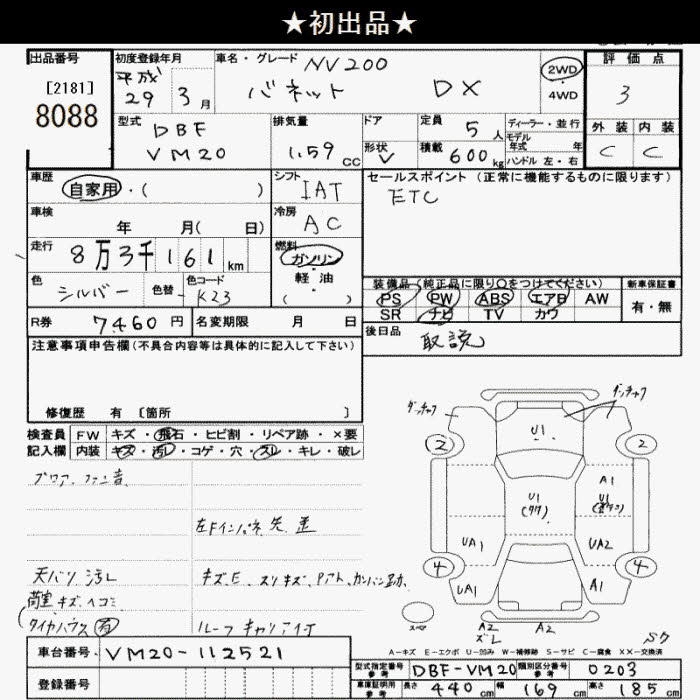 ★初出品★
出品番号
[2181]
8088
初度登録年月
平成
29 3月
車名・グレード
NV200
バネット DX
2WD
4WD
評価点
3
外装 内装
C C
型式
DBF
VM20
排気量
1.59 cc
ドア
形状 V
定員 5人
積載 600kg
ディーラー・並行
モデル
年式 年
ハンドル 左・右
車歴
自家用・( )
シフト
IAT
セールスポイント (正常に機能するものに限ります)
ETC
車検
年 月( 日)
冷房
AC
走行
8万3千161km
燃料
ガソリン
・
軽油
( )
色
シルバー
色替
色コード
K23
装備品(純正品に限り○をつけてください)
PS PW ABS エアB AW
SR ナビ TV カワ
新車保証書
有・無
R券 7460円
名変期限 月 日
後日品
取説
注意事項申告欄(不具合内容等は具体的に記入して下さい)
修復歴 有 〔箇所 〕
検査員
記入欄
FW キズ・飛石・ヒビ割・リペア跡・×要
内装 キズ・汚レ・コゲ・穴・スレ・キレ・破レ
ブロア ファン音
左Fインパネ 先 歪
天バリ 汚レ
キズ、E、スリキズ、Pアト、カンバン跡
荷室 キズ、ヘコミ
タイヤハウス 有
ルーフキャリア付
ダッチャク
ダッチャク
2
2
U1
A1
U1
U1
UA1
UA2
4
4
UA1
A1
スペア
A2
ズレ
A2
A-キズ E-エクボ U-凹み W-補修跡 S-サビ C-腐食 XX-交換済
車台番号 VM20-112521
登録番号
型式指定番号
参考
DBF-VM20
類別区分番号
参考
0203
車庫証明用
参考
長さ 440cm
幅 169cm
高さ 185cm